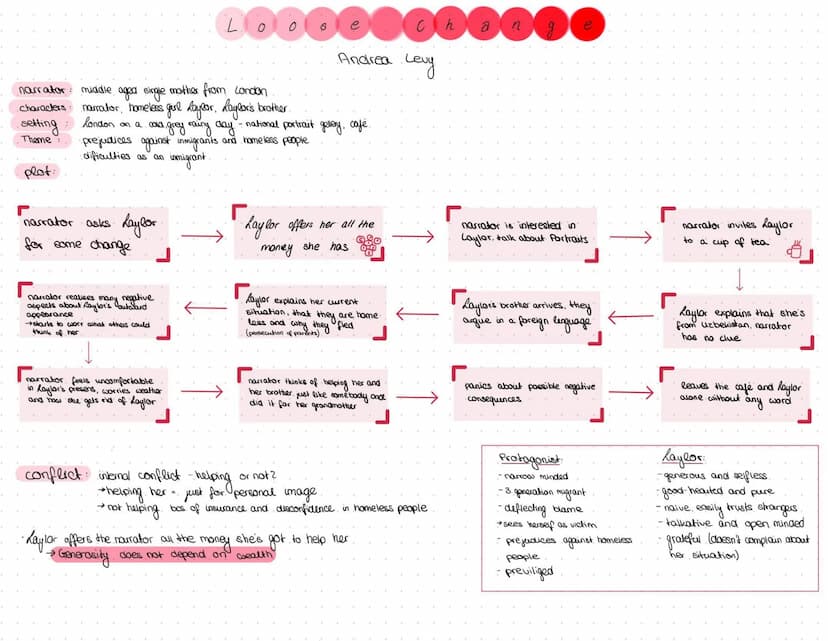 Loose change
Andrea Levy
narrator: middle aged single mother from London
characters: narrator, homeless girl Laylor, Laylor's brother
setting: London on a cold, grey rainy day - national portrait gallery, café
Theme: prejudices against immigrants and homeless people
difficulties as an immigrant
plot:
narrator asks Laylor
for some change
Laylor offers her all the
money she has
narrator is interested in
Laylor, talk about Portraits
narrator invites Laylor
to a cup of tea
Laylor explains that she's
from Uzbekistan, narrator
has no clue
Laylors brother arrives, they
argue in a foreign language
Laylor explains her current
situation, that they are home-
less and why they fled
(persecution of parents)
narrator realises many negative
aspects about Laylor's outward
appearance
→ starts to worr what others could
think of her
narrator feels uncomfortable
in Laylor's presens, worries
and how she gets rid of Laylor
narrator thinks of helping her and
her brother just like somebody and
did it for her grandmother
panics about possible negative
consequences
leaves the café and Laylor
alone without any word
conflict: internal conflict - helping or not?
→ helping her = just for personal image
→ not helping bcs of insurance and disconfidence in homeless people
· Laylor offers the narrator all the money she's got to help her
→ Generosity does not depend on wealth
Protagonist:
- narrow minded
- 3 generation migrant
- deflecting blame
→ sees herself as victim
- prejudices against homeless
people
- previliged
Laylor:
- generous and selfless
- good hearted and pure
- naive, easily trusts strangers
- talkative and open minded
- grateful (doesn't complain about
her situation)